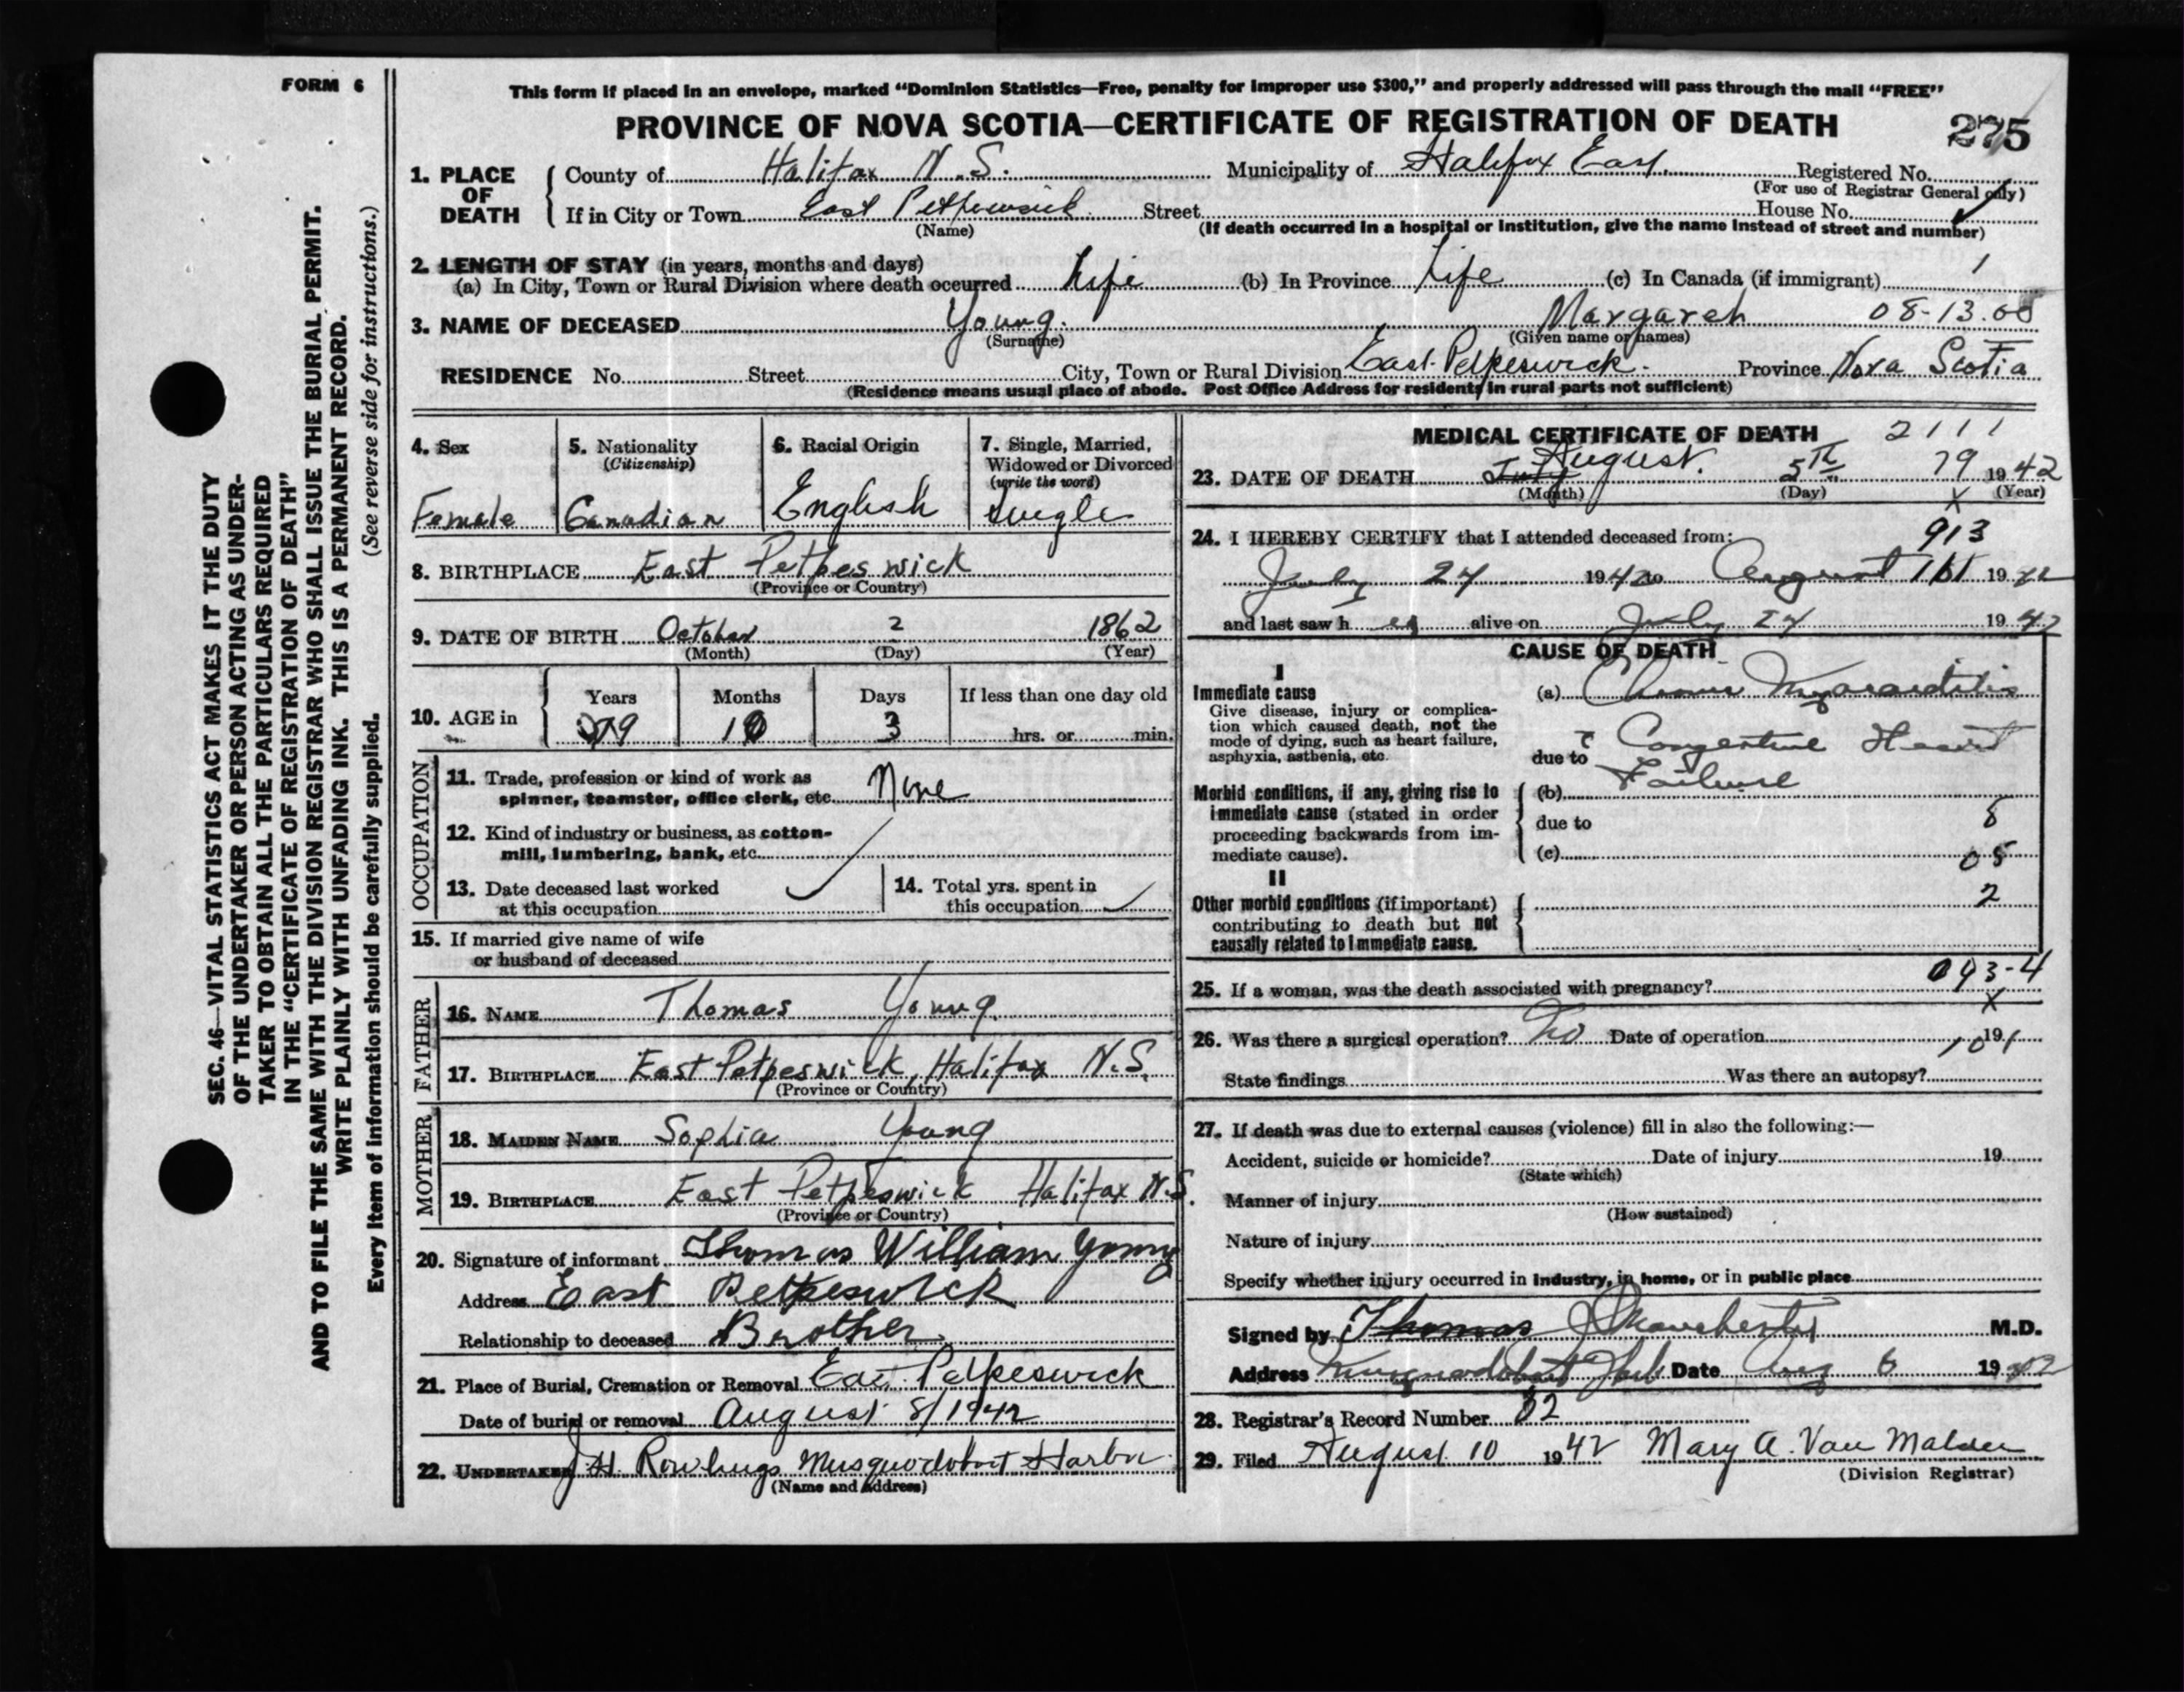 FORM 6
This form if placed in an envelope, marked “Dominion Statistics—Free, penalty for improper use $300,” and properly addressed will pass through the mail “FREE”
PROVINCE OF NOVA SCOTIA—CERTIFICATE OF REGISTRATION OF DEATH
275
1. PLACE OF DEATH
County of Halifax N.S. Municipality of Halifax East. Registered No.
(For use of Registrar General only)
If in City or Town East Petpeswick Street House No.
(Name) (If death occurred in a hospital or institution, give the name instead of street and number)
2. LENGTH OF STAY (in years, months and days)
(a) In City, Town or Rural Division where death occurred Life (b) In Province Life (c) In Canada (if immigrant) 1
3. NAME OF DECEASED Young. Margaret 08-13.00
(Surname) (Given name or names)
RESIDENCE No. Street City, Town or Rural Division East Petpeswick. Province Nova Scotia
(Residence means usual place of abode. Post Office Address for residents in rural parts not sufficient)
SEC. 46—VITAL STATISTICS ACT MAKES IT THE DUTY
OF THE UNDERTAKER OR PERSON ACTING AS UNDER-
TAKER TO OBTAIN ALL THE PARTICULARS REQUIRED
IN THE “CERTIFICATE OF REGISTRATION OF DEATH”
AND TO FILE THE SAME WITH THE DIVISION REGISTRAR WHO SHALL ISSUE THE BURIAL PERMIT.
WRITE PLAINLY WITH UNFADING INK. THIS IS A PERMANENT RECORD.
Every item of information should be carefully supplied. (See reverse side for instructions.)
4. Sex
Female
5. Nationality
(Citizenship)
Canadian
6. Racial Origin
English
7. Single, Married,
Widowed or Divorced
(write the word)
Single
8. BIRTHPLACE East Petpeswick
(Province or Country)
9. DATE OF BIRTH October 2 1862
(Month) (Day) (Year)
10. AGE in
Years Months Days If less than one day old
79 10 3 hrs. or min.
OCCUPATION
11. Trade, profession or kind of work as
spinner, teamster, office clerk, etc. None
12. Kind of industry or business, as cotton-
mill, lumbering, bank, etc.
13. Date deceased last worked
at this occupation
14. Total yrs. spent in
this occupation
15. If married give name of wife
or husband of deceased
FATHER
16. NAME Thomas Young
17. BIRTHPLACE East Petpeswick, Halifax N.S.
(Province or Country)
MOTHER
18. MAIDEN NAME Sophia Young
19. BIRTHPLACE East Petpeswick Halifax N.S.
(Province or Country)
20. Signature of informant Thomas William Young
Address East Petpeswick
Relationship to deceased Brother.
21. Place of Burial, Cremation or Removal East Petpeswick
Date of burial or removal August 8/1942
22. UNDERTAKER J H. Rowlings Musquodoboit Harbor
(Name and Address)
MEDICAL CERTIFICATE OF DEATH 2111
23. DATE OF DEATH July August. 5th 79 1942
(Month) (Day) X (Year)
24. I HEREBY CERTIFY that I attended deceased from: 913
July 24 1942 to August 1st 1942
and last saw her alive on July 24 1942
CAUSE OF DEATH
I
Immediate cause
Give disease, injury or complica-
tion which caused death, not the
mode of dying, such as heart failure,
asphyxia, asthenia, etc.
(a) Chronic Myocarditis
due to c Congestive Heart
Failure
Morbid conditions, if any, giving rise to
immediate cause (stated in order
proceeding backwards from im-
mediate cause).
(b)
due to 8
(c) 05
II
Other morbid conditions (if important)
contributing to death but not
causally related to immediate cause.
2
093-4
25. If a woman, was the death associated with pregnancy?
X
26. Was there a surgical operation? No Date of operation 19
State findings Was there an autopsy?
27. If death was due to external causes (violence) fill in also the following:—
Accident, suicide or homicide? Date of injury 19
(State which)
Manner of injury
(How sustained)
Nature of injury
Specify whether injury occurred in industry, in home, or in public place
Signed by Thomas M.D.
Address Musquodoboit Hrb Date Aug 6 1942
28. Registrar's Record Number 32
29. Filed August 10 1942 Mary A. Van Malder
(Division Registrar)